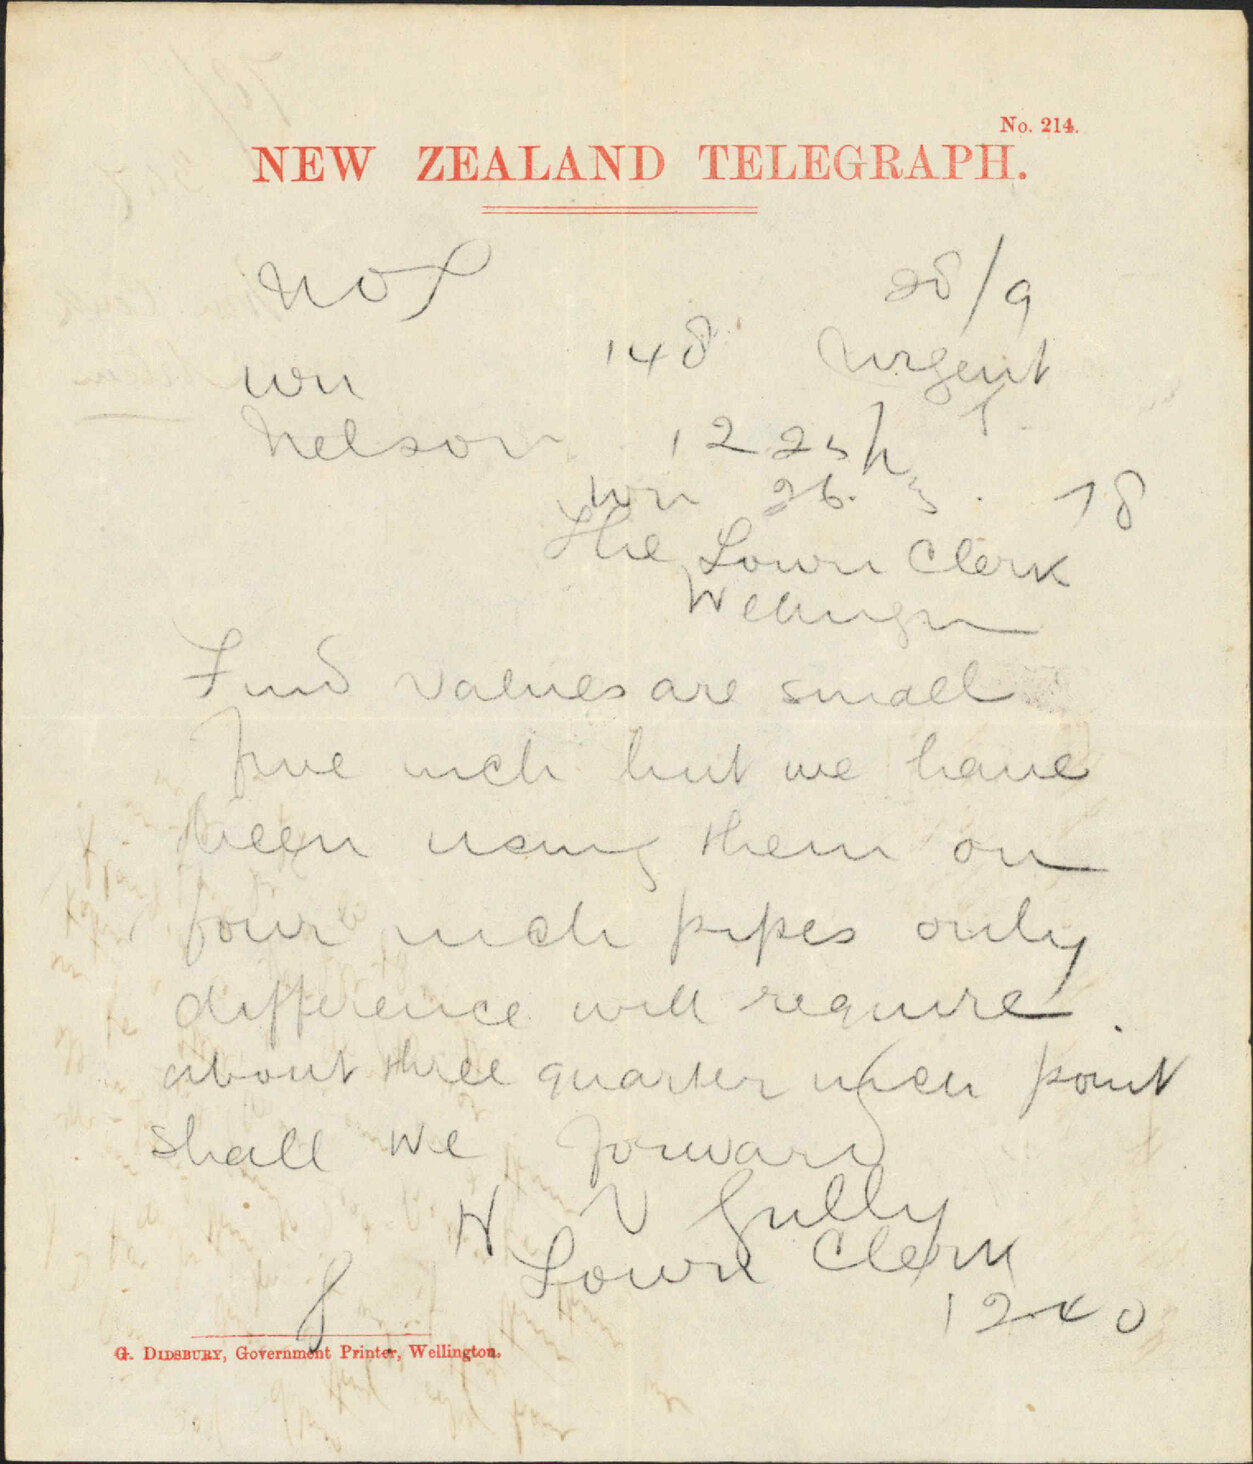 No. 214.
NEW ZEALAND TELEGRAPH.
28/9
148 Urgent
Wn
Nelson 12 25 p
Wn 26. 78
The Town Clerk
Wellington
Find values are small
five inch but we have
been using them on
four inch pipes only
difference will require
about three quarter inch point
shall we forward
H V Gully
Town Clerk
12 40
G. DIDSBURY, Government Printer, Wellington.